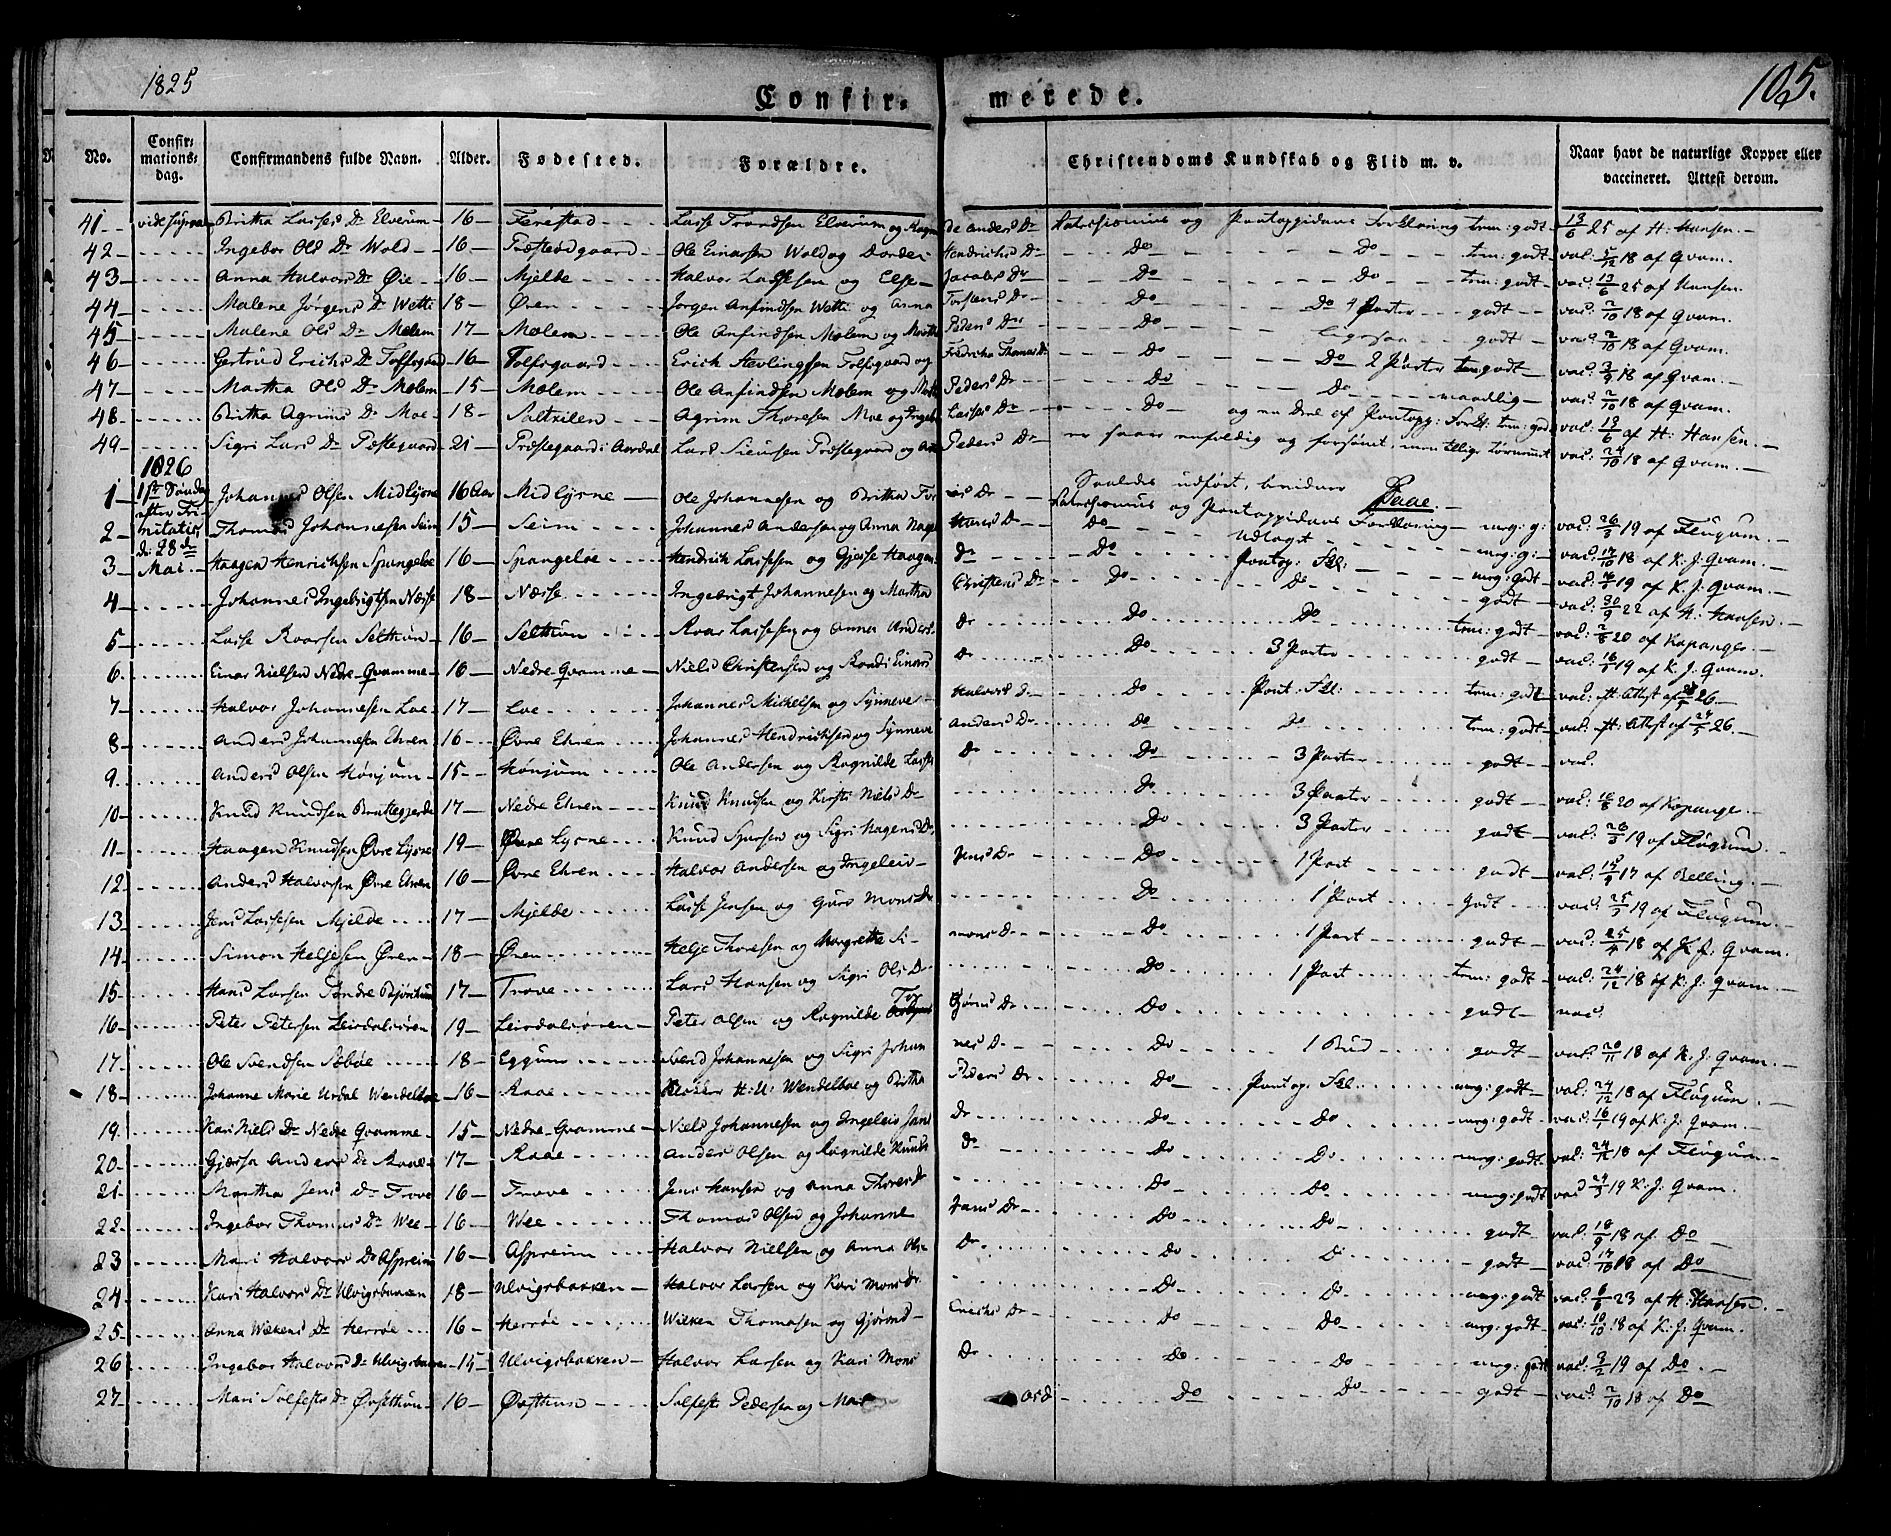 1825
Confir- merede.
105.
No. Confirmations-dag. Confirmandens fulde Navn. Alder. Fødested. Forældre. Christendoms Kundskab og Flid m. v. Naar havt de naturlige Kopper eller vaccineret. Attest derom.
41 vide supra Britha Lasses Dr Elverum 16 Ferestad Lasse Trondsen Elverum og Anders Dr Katechismus og Pontoppidans Forklaring tem: godt 13/6 25 af H: Hansen.
42 Ingebor Ols Dr Wold 16 Ole Einarsen Wold og Hendrichs Dr Do Do tem: godt vac: 5/12 18 af Qvam.
43 Anna Halvors Dr Øie 16 Mjelde Halvor Lassesen og Else Jacobs Dr Do Do tem: godt vac: 13/6 25 af Hansen.
44 Malene Jørgens Dr Wetti 18 Øren Jørgen Anfindsen Wetti og Anna Torstens Dr Do Do 4 Parter godt vac: 2/10 18 af Qvam.
45 Malene Ols Dr Molem 17 Molem Ole Anfindsen Molem og Peders Dr Do Ligesaa godt vac: 2/10 18 af Qvam.
46 Gertrud Erichs Dr 16 Erich og Fredricha Thomas Dr Do Do 2 Parter tem: godt vac: 2/9 18 af Qvam.
47 Martha Ols Dr Molem 15 Molem Ole Anfindsen Molem og Peders Dr Do Do maadlig vac: 2/10 18 af Qvam.
48 Britha Agrims Dr Moe 18 Agrim Thoresen Moe og Lasses Dr Do og en Deel af Pontopp: Forkl: tem: godt vac: 13/6 af H: Hansen.
49 Sigri Lars Dr Præstegaard 21 Præstegaard i Aardal Lars Siursen Præstegaard og Peders Dr er saare enfoldig og forsømt, men vac: 24/10 18 af Qvam.
1826
Saaledes udført, bevidner
1 1ste Søndag Johannes Olsen Midlysne 16 Aar Midlysne Ole Johannesen og Britha Katechismus og Pontoppidans Forklaring mrg: g: vac: 26/3 19 af Flugum.
2 efter Trinitatis Thomas Johannesen Seim 15 Seim Johannes Andersen og Anna Hans Dr Do Udtoget mrg: g: vac: 17/10 18 af K. J. Qvam.
3 d: 28de Mai Haagen Henrichsen Spangeloe 16 Spangeloe Hendrich Lassesen og Gjerse Haagen Dr Do Pontop: Fkl: mrg: godt vac: 19 af K. J. Qvam.
4 Johannes Ingebrigtsen Næsse 18 Næsse Ingebrigt Johannesen og Martha Christens Dr Do Do godt vac: 30/9 22 af H. Hansen.
5 Lasse Roarsen Selthun 16 Selthun Roar Lassesen og Anna Anders Dr Do Do tem: godt vac: 2/8 20 af Kopange
6 Einar Nielsen Nedre Qvamme 16 Nedre Qvamme Niels Christensen og Randi Einars Dr Do 3 Parter godt vac: 16/ 19 af K. J. Qvam.
7 Halvor Johannesen Loe 17 Loe Johannes Mikkelsen og Synneve Halvors Dr Do Pont: Fkl: tem: godt vac: H: Attest af 26
8 Anders Johannesen Ehren 16 Øvre Ehren Johannes Hendrichsen og Synneve Anders Dr Do Do tem: godt vac: H: Attest af 26.
9 Anders Olsen Hønjum 15 Hønjum Ole Andersen og Ragnilde Lasses Dr Do 3 Parter godt vac.
10 Knud Knudsen 17 Nedre Ehren Knud Knudsen og Kirsti Niels Dr Do 3 Parter godt vac: 16/8 20 af Kopange
11 Haagen Knudsen Øvre Lysne 19 Øvre Lysne Knud Sjursen og Sigri Hagens Dr Do 3 Parter godt vac: 26/3 19 af Flugum.
12 Anders Halvorsen Øvre Ehren 16 Øvre Ehren Halvor Andersen og Ingeleiv Jens Dr Do 1 Part godt vac: 15/9 17 af Belling.
13 Jens Lassesen Mjelde 17 Mjelde Lasse Jensen og Guro Mons Dr Do 1 Part godt vac: 25/3 19 af Flugum.
14 Simon Heljesen Øren 18 Øren Helje Thoresen og Margrethe Simons Dr Do 1 Part godt vac: 25/4 18 af K. J. Qvam.
15 Hans Larsen Søndre Bjørkum 17 Trove Lars Hansen og Sigri Ols Dr Do 1 Part tem: godt vac: 24/12 18 af K: J: Qvam.
16 Peter Petersen Leirdalsøren 19 Leirdalsøren Peter Olsen og Ragnilde Torbjørns Dr Do godt vac:
17 Ole Svendsen Sæbøe 18 Eggum Svend Johannesen og Sigri Johannes Dr Do 1 Bud godt vac: 20/11 18 af K. J. Qvam.
18 Johanne Marie Urdal Wendelboe 16 Raae Klokker H: U: Wendelboe og Britha Peders Dr Do Pontop: Fkl: mrg: godt vac: 24/12 18 af Flugum.
19 Kari Niels Dr Nedre Qvamme 15 Nedre Qvamme Niels Johannesen og Ingeleiv Jans Dr Do Do mrg: godt vac: 16/ 19 af K. J. Qvam.
20 Gjersa Anders Dr Raae 17 Raae Anders Olsen og Ragnilde Knuds Dr Do Do mrg: godt vac: 24/12 18 af Flugum.
21 Martha Jens Dr Trove 16 Trove Jens Hansen og Anna Thores Dr Do Do mrg: godt vac 24/3 19 K. J. Qvam.
22 Ingebor Thomas Dr Wee 16 Wee Thomas Olsen og Johanne Jans Dr Do Do godt vac: 18/9 18 af Do
23 Mari Halvors Dr Aspreim 16 Aspreim Halvor Nielsen og Anna Ols Dr Do Do godt vac: 17/10 18 af Do
24 Kari Halvors Dr Ulvigsbakken 18 Ulvigsbakken Halvor Larsen og Kari Mons Dr Do Do mrg: godt vac: 6/6 23 af H: Hansen.
25 Anna Wilkens Dr Herroe 16 Herroe Wilken Thomasen og Gjørond Erichs Dr Do Do mrg: godt vac: 10/10 18 af K: J. Qvam.
26 Ingebor Halvors Dr Ulvigsbakken 15 Ulvigsbakken Halvor Larsen og Kari Mons Dr Do Do mrg: godt vac: 2/2 19 af Do
27 Mari Solfests Dr Øvsthun 16 Øvsthun Solfest Pedersen og Do Do godt vac: 2/10 18 af Do